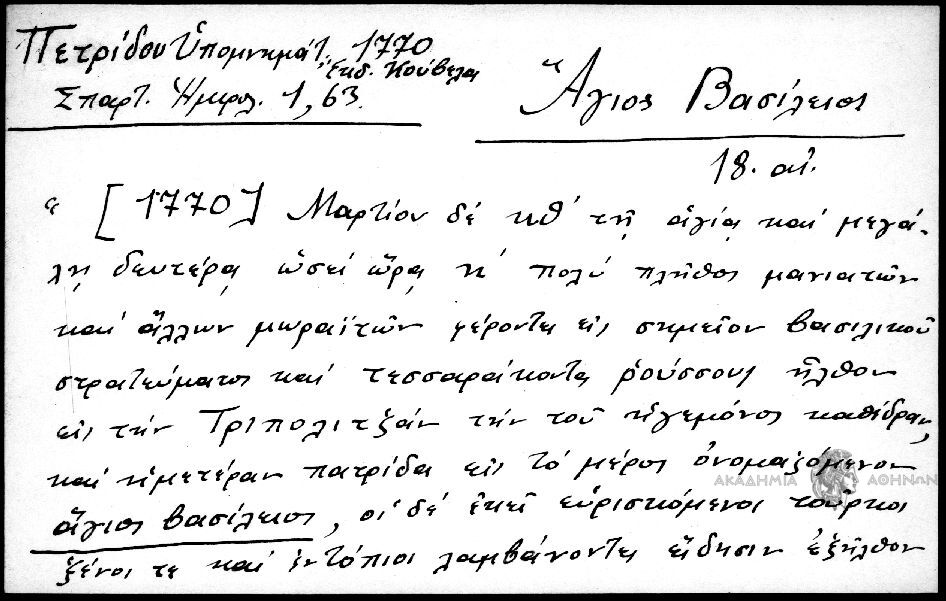 Πετρίδου Ὑπομνημάτ. 1770
ἔκδ. Κουβελα
Σπαρτ. Ἡμερολ. 1, 63.
Ἅγιος Βασίλειος
18. αἰ.
" [1770] Μαρτίου δέ κθ' τῇ ἁγίᾳ καί μεγά-
λῃ δευτέρᾳ ὡσεί ὥρᾳ η' πολύ πλῆθος μανιατῶν
καί ἄλλων μωραϊτῶν φέροντες εἰς σημεῖον βασιλικοῦ
στρατεύματος καί τεσσαράκοντα ῥούσσους ἦλθον
εἰς τήν Τριπολιτζάν τήν τοῦ ἡγεμόνος καθέδραν,
καί ἡμετέραν πατρίδα εἰς τό μέρος ὀνομαζόμενον
ἅγιος βασίλειος, οἱ δέ ἐκεῖ εὑρισκόμενοι τοῦρκοι
ξένοι τε καί ἐντόπιοι λαμβάνοντες εἴδησιν ἐξῆλθον
ΑΚΑΔΗΜΙΑ ΑΘΗΝΩΝ